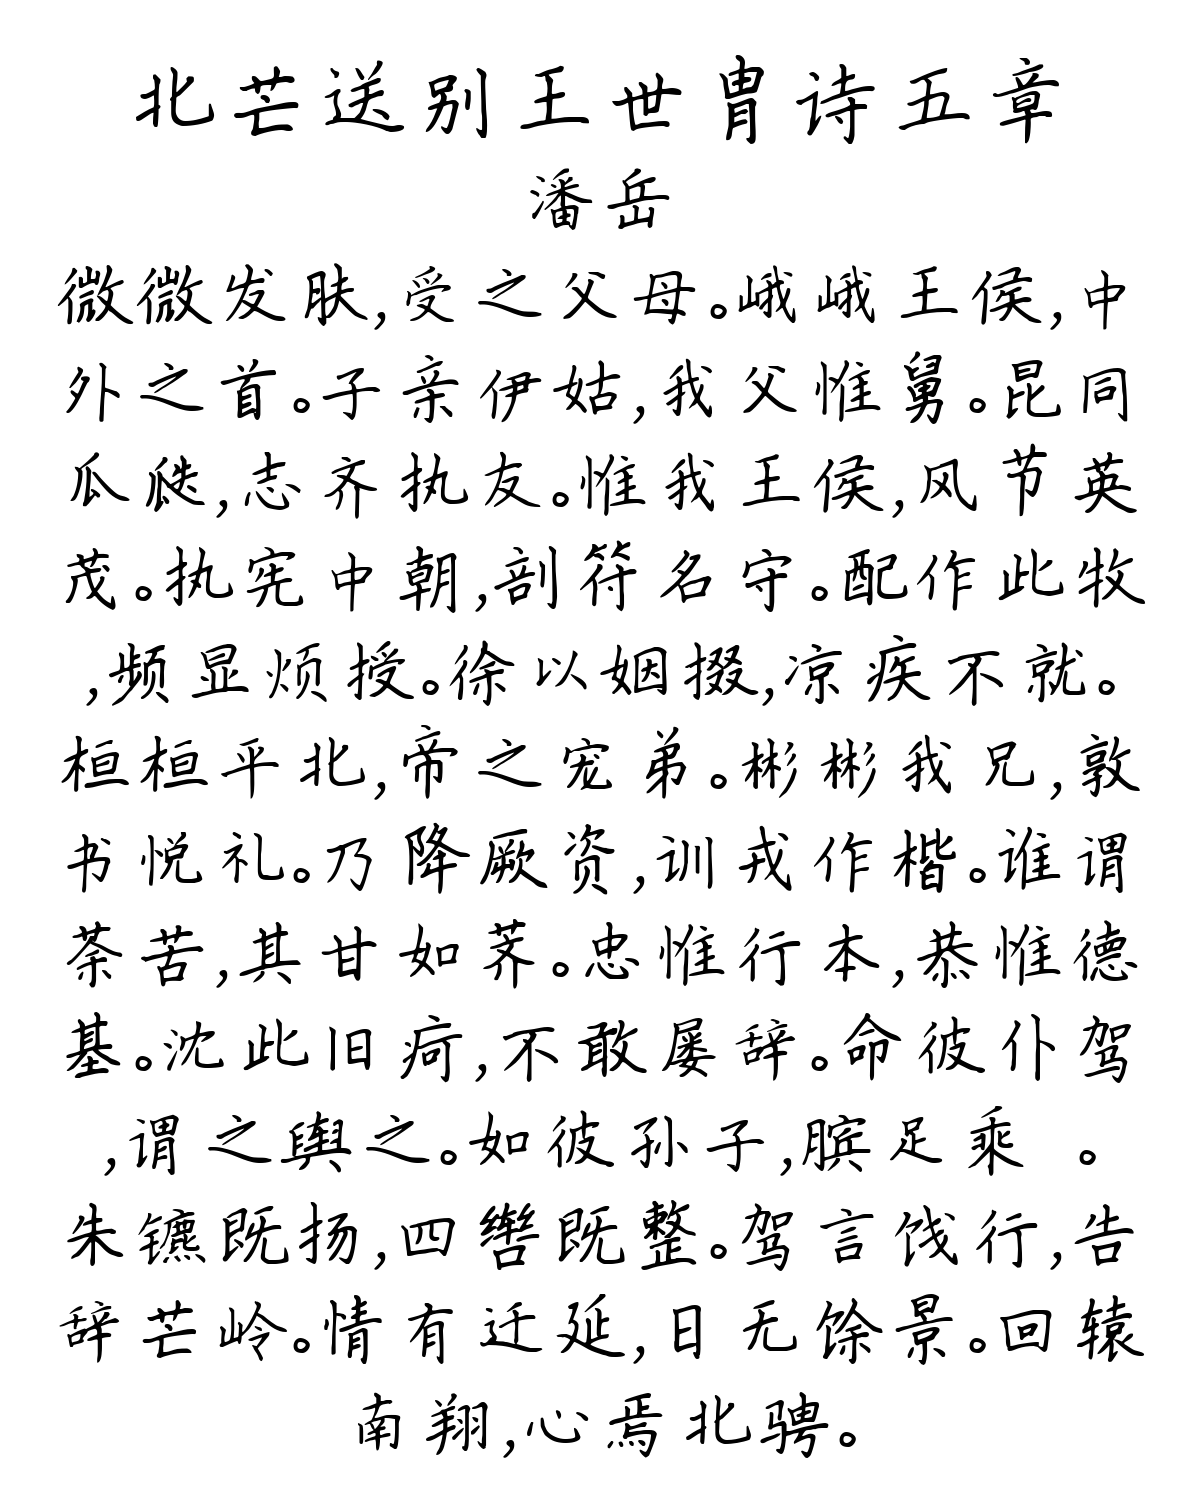 北芒送别王世胄诗五章
潘岳
微微发肤,受之父母。峨峨王侯,中
外之首。子亲伊姑,我父惟舅。昆同
瓜瓞,志齐执友。惟我王侯,风节英
茂。执宪中朝,剖符名守。配作此牧
,频显烦授。徐以姻掇,凉疾不就。
桓桓平北,帝之宠弟。彬彬我兄,敦
书悦礼。乃降厥资,训戎作楷。谁谓
荼苦,其甘如荠。忠惟行本,恭惟德
基。沈此旧疴,不敢屡辞。命彼仆驾
,谓之舆之。如彼孙子,膑足乘 。
朱镳既扬,四辔既整。驾言饯行,告
辞芒岭。情有迁延,日无馀景。回辕
南翔,心焉北骋。